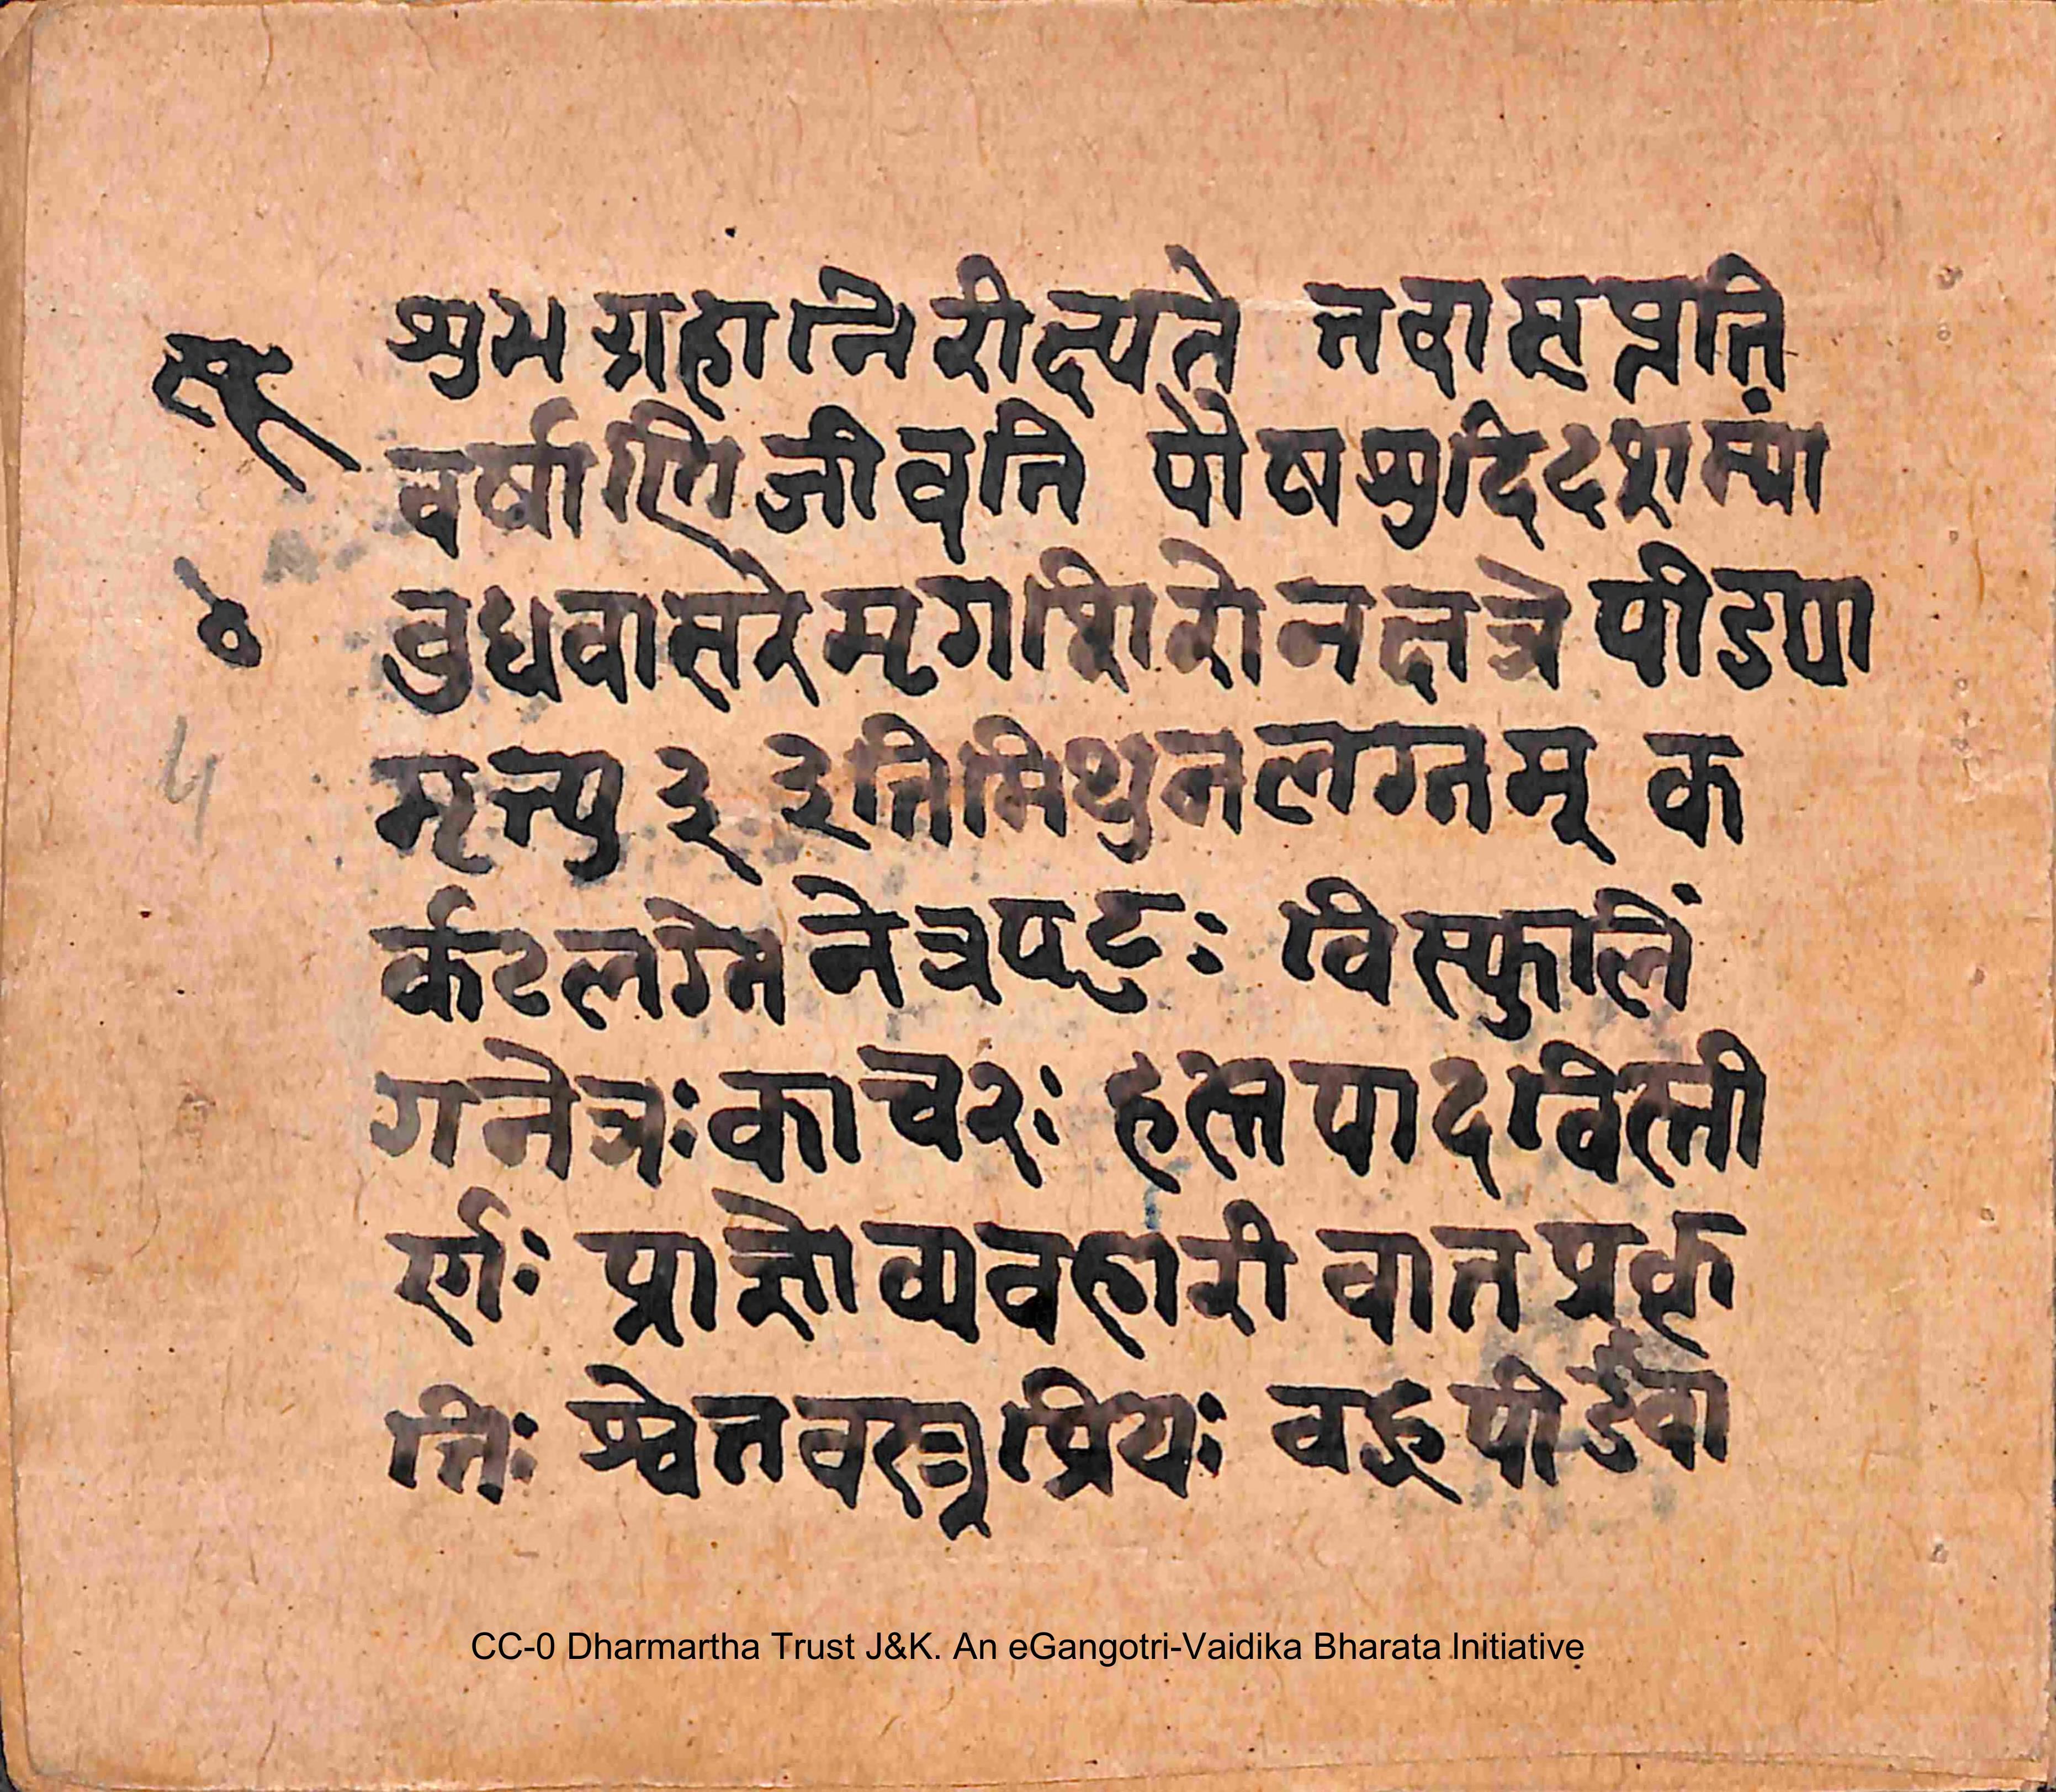 शुभग्रहानिरीक्ष्यते तदासप्तति
वर्षाणिजीवति पौषशुदिदशम्यां
बुधवासरेमृगशिरोनक्षत्रेपीडया
मृत्यु ३ इतिमिथुनलग्नम् क
र्कटलग्नेनेत्रपटुः विस्फुलिं
गनेत्रःकाचरः हस्तपादविस्ती
र्णः प्राज्ञोव्यवहारी वातप्रकृ
तिः श्वेतवस्त्रप्रियः बहुपीडैवा
ल
५
CC-0 Dharmartha Trust J&K. An eGangotri-Vaidika Bharata Initiative